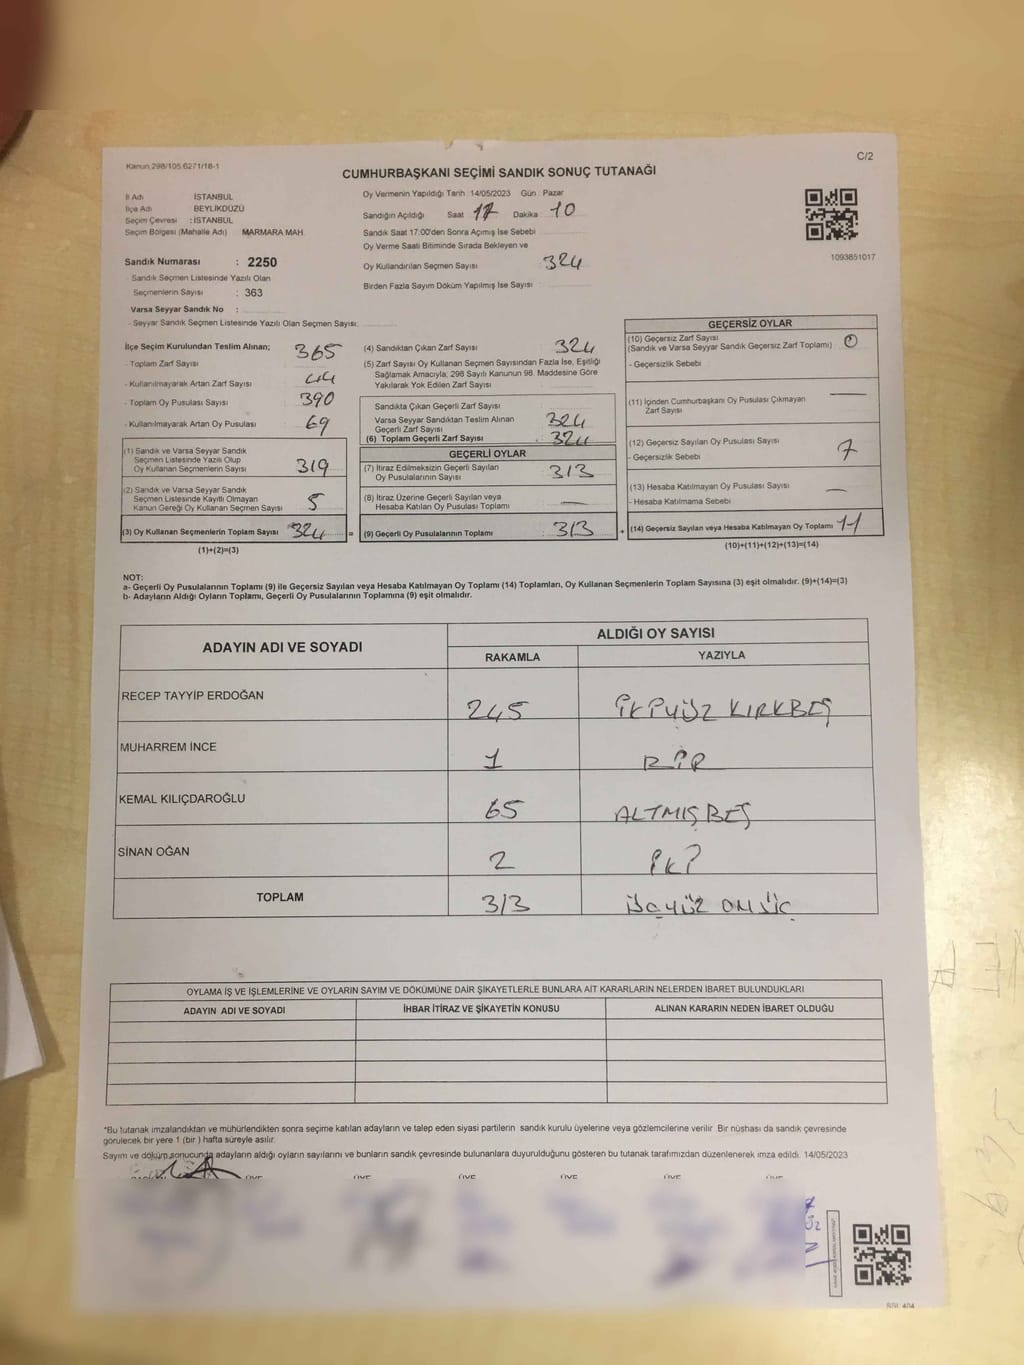 Kanun 298/105.6271/18-1
C/2
CUMHURBAŞKANI SEÇİMİ SANDIK SONUÇ TUTANAĞI
İl Adı İSTANBUL
İlçe Adı BEYLİKDÜZÜ
Seçim Çevresi : İSTANBUL
Seçim Bölgesi (Mahalle Adı) MARMARA MAH.
Sandık Numarası : 2250
Sandık Seçmen Listesinde Yazılı Olan
Seçmenlerin Sayısı : 363
Varsa Seyyar Sandık No :
- Seyyar Sandık Seçmen Listesinde Yazılı Olan Seçmen Sayısı:
Oy Vermenin Yapıldığı Tarih 14/05/2023 Gün Pazar
Sandığın Açıldığı Saat 17 Dakika 10
Sandık Saat 17:00'den Sonra Açımış İse Sebebi
Oy Verme Saati Bitiminde Sırada Bekleyen ve
Oy Kullandırılan Seçmen Sayısı : 324
Birden Fazla Sayım Döküm Yapılmış İse Sayısı :
1093851017
İlçe Seçim Kurulundan Teslim Alınan;
- Toplam Zarf Sayısı 365
- Kullanılmayarak Artan Zarf Sayısı 44
- Toplam Oy Pusulası Sayısı 390
- Kullanılmayarak Artan Oy Pusulası 69
(1) Sandık ve Varsa Seyyar Sandık
Seçmen Listesinde Yazılı Olup
Oy Kullanan Seçmenlerin Sayısı 319
(2) Sandık ve Varsa Seyyar Sandık
Seçmen Listesinde Kayıtlı Olmayan
Kanun Gereği Oy Kullanan Seçmen Sayısı 5
(3) Oy Kullanan Seçmenlerin Toplam Sayısı 324 =
(1)+(2)=(3)
(4) Sandıktan Çıkan Zarf Sayısı 324
(5) Zarf Sayısı Oy Kullanan Seçmen Sayısından Fazla İse, Eşitliği
Sağlamak Amacıyla, 298 Sayılı Kanunun 98. Maddesine Göre
Yakılarak Yok Edilen Zarf Sayısı
Sandıkta Çıkan Geçerli Zarf Sayısı
Varsa Seyyar Sandıktan Teslim Alınan
Geçerli Zarf Sayısı 324
(6) Toplam Geçerli Zarf Sayısı 324
GEÇERLİ OYLAR
(7) İtiraz Edilmeksizin Geçerli Sayılan
Oy Pusulalarının Sayısı 313
(8) İtiraz Üzerine Geçerli Sayılan veya
Hesaba Katılan Oy Pusulası Toplamı —
(9) Geçerli Oy Pusulalarının Toplamı 313 +
GEÇERSİZ OYLAR
(10) Geçersiz Zarf Sayısı
(Sandık ve Varsa Seyyar Sandık Geçersiz Zarf Toplamı)
- Geçersizlik Sebebi
(11) İçinden Cumhurbaşkanı Oy Pusulası Çıkmayan
Zarf Sayısı —
(12) Geçersiz Sayılan Oy Pusulası Sayısı
- Geçersizlik Sebebi 7
(13) Hesaba Katılmayan Oy Pusulası Sayısı —
- Hesaba Katılmama Sebebi
(14) Geçersiz Sayılan veya Hesaba Katılmayan Oy Toplamı 11
(10)+(11)+(12)+(13)=(14)
NOT:
a- Geçerli Oy Pusulalarının Toplamı (9) ile Geçersiz Sayılan veya Hesaba Katılmayan Oy Toplamı (14) Toplamları, Oy Kullanan Seçmenlerin Toplam Sayısına (3) eşit olmalıdır. (9)+(14)=(3)
b- Adayların Aldığı Oyların Toplamı, Geçerli Oy Pusulalarının Toplamına (9) eşit olmalıdır.
ADAYIN ADI VE SOYADI ALDIĞI OY SAYISI
RAKAMLA YAZIYLA
RECEP TAYYİP ERDOĞAN 245 İKİYÜZ KIRKBEŞ
MUHARREM İNCE 1 BİR
KEMAL KILIÇDAROĞLU 65 ALTMIŞBEŞ
SİNAN OĞAN 2 İKİ
TOPLAM 313 ÜÇYÜZ ONÜÇ
OYLAMA İŞ VE İŞLEMLERİNE VE OYLARIN SAYIM VE DÖKÜMÜNE DAİR ŞİKAYETLERLE BUNLARA AİT KARARLARIN NELERDEN İBARET BULUNDUKLARI
ADAYIN ADI VE SOYADI İHBAR İTİRAZ VE ŞİKAYETİN KONUSU ALINAN KARARIN NEDEN İBARET OLDUĞU
*Bu tutanak imzalandıktan ve mühürlendikten sonra seçime katılan adayların ve talep eden siyasi partilerin sandık kurulu üyelerine veya gözlemcilerine verilir. Bir nüshası da sandık çevresinde
görülecek bir yere 1 (bir ) hafta süreyle asılır.
Sayım ve döküm sonucunda adayların aldığı oyların sayılarını ve bunların sandık çevresinde bulunanlara duyurulduğunu gösteren bu tutanak tarafımızdan düzenlenerek imza edildi. 14/05/2023
ÜYE ÜYE ÜYE ÜYE ÜYE ÜYE